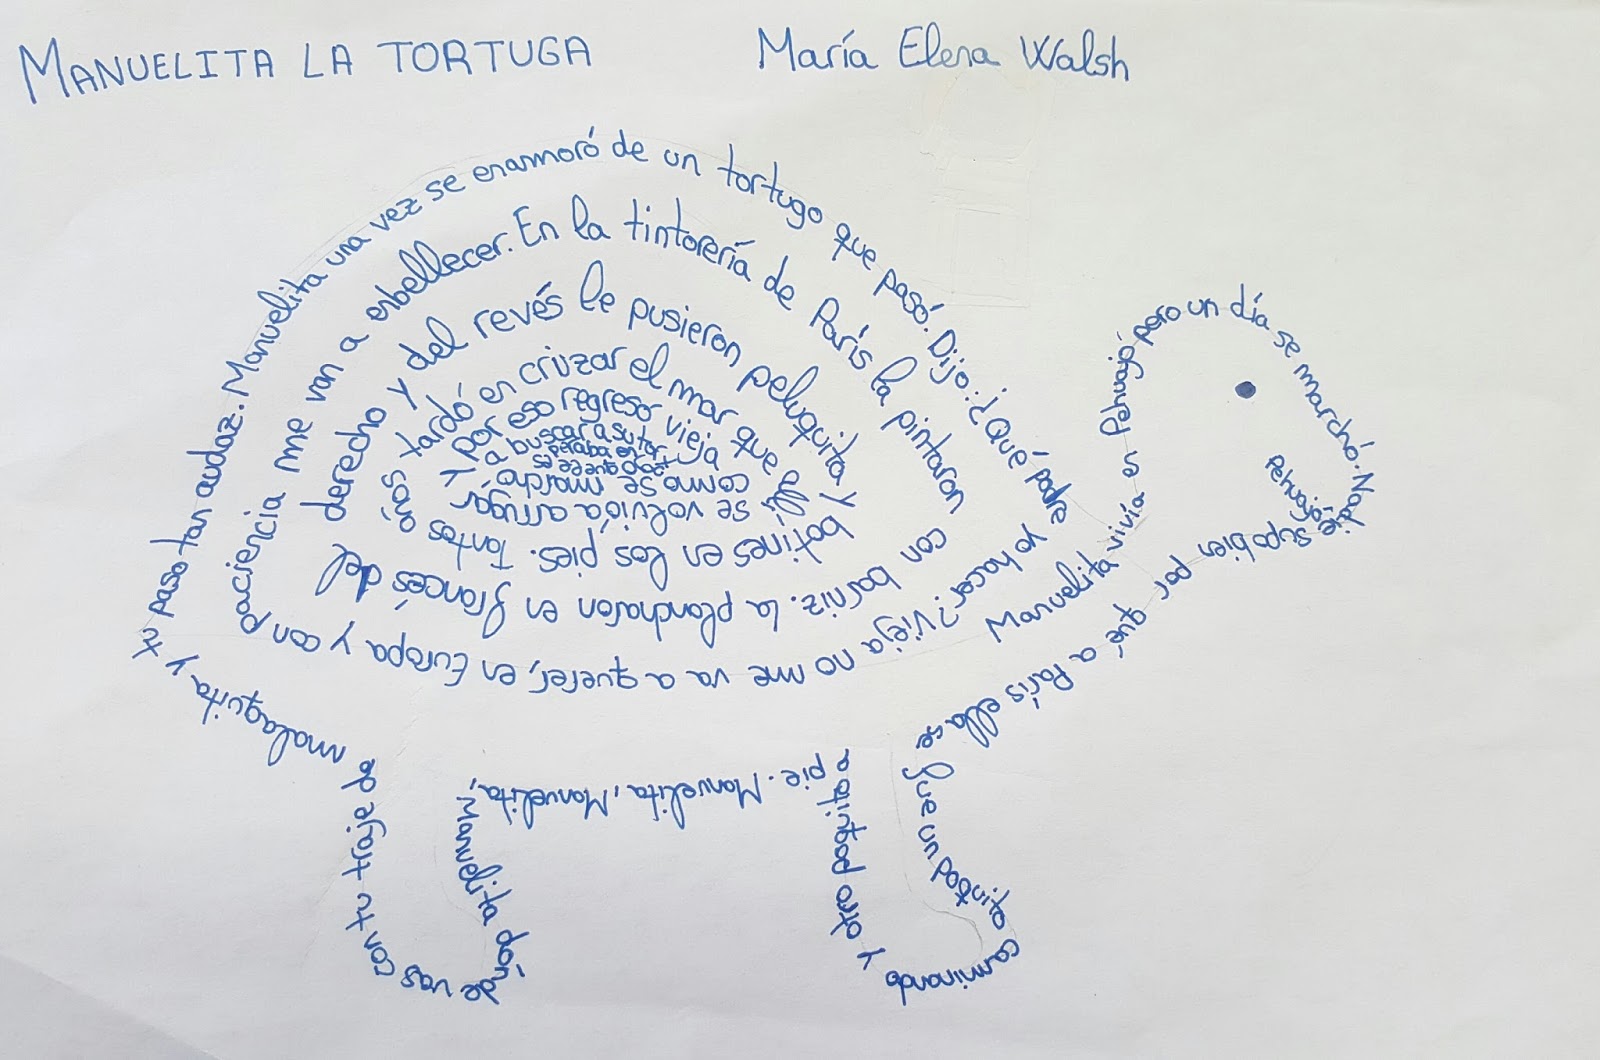 MANUELITA LA TORTUGA
María Elena Walsh
Manuelita vivía en Pehuajó pero un día se marchó. Nadie supo bien por qué a París ella se fue un poquito caminando y otro poquitito a pie. Manuelita, Manuelita, Manuelita dónde vas con tu traje de malaquita y tu paso tan audaz. Manuelita una vez se enamoró de un tortugo que pasó. Dijo: ¿Qué podré yo hacer? Vieja no me va a querer, en Europa y con paciencia me van a enbellecer. En la tintorería de París la pintaron con barniz. La plancharon en francés del derecho y del revés le pusieron peluquita y botines en los pies. Tantos años tardó en cruzar el mar que allí se volvió a arrugar y por eso regresó vieja como se marchó a buscar a su tortugo que le esperaba en
Pehuajó